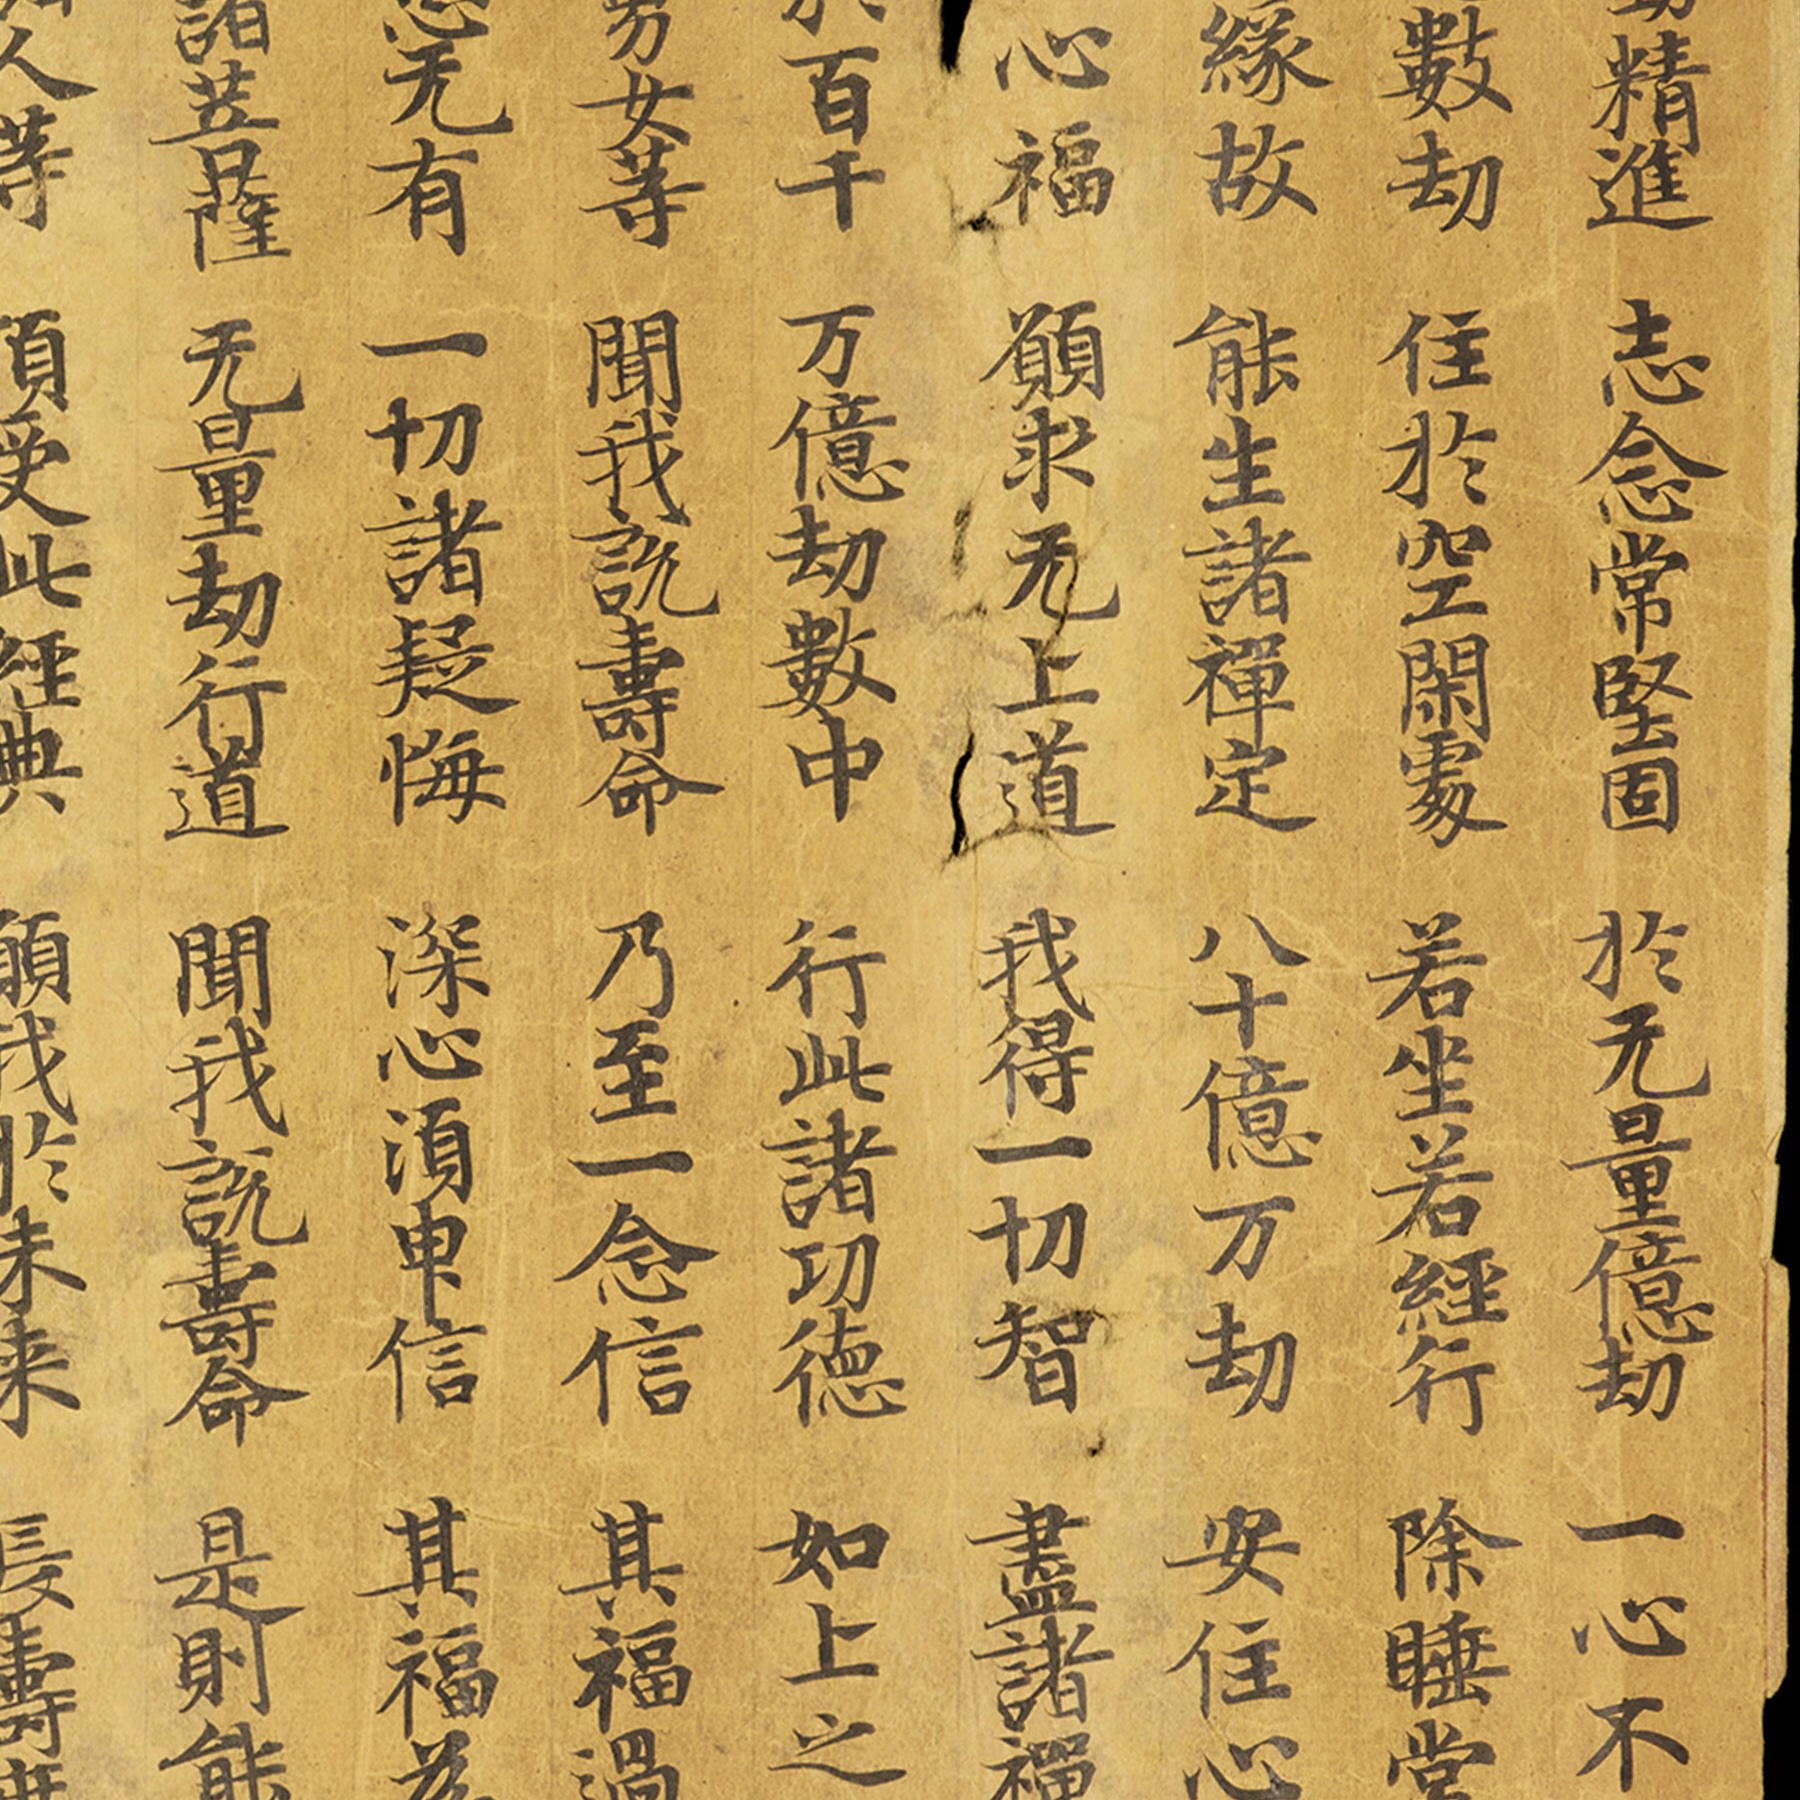 精進 志念常堅固 於无量億劫 一心不
數劫 住於空閑處 若坐若經行 除睡常
緣故 能生諸禪定 八十億万劫 安住心
心福 願求无上道 我得一切智 盡諸禪
百千 万億劫數中 行此諸功德 如上之
男女等 聞我說壽命 乃至一念信 其福過
悉无有 一切諸疑悔 深心須申信 其福
諸菩薩 无量劫行道 聞我說壽命 是則能
人等 頂受此經典 願我於未来 長壽